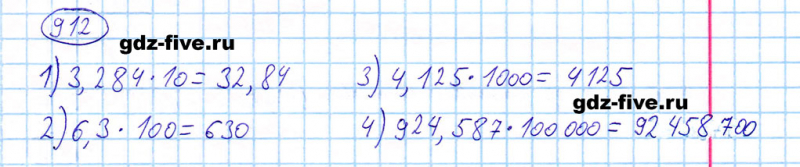 912
gdz-five.ru
1) 3,284·10= 32,84
3) 4,125·1000= 4125
gdz-five.ru
2) 6,3·100=630
4) 924,587·100 000= 92 458 700